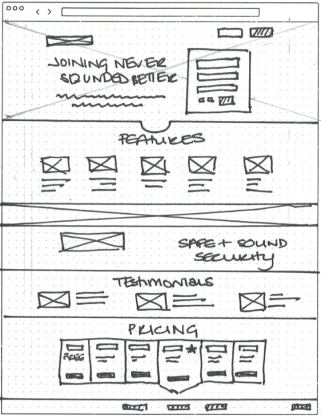 JOINING NEVER
SOUNDED BETTER
FEATURES
SAFE + SOUND
SECURITY
TESTIMONIALS
PRICING
FREE